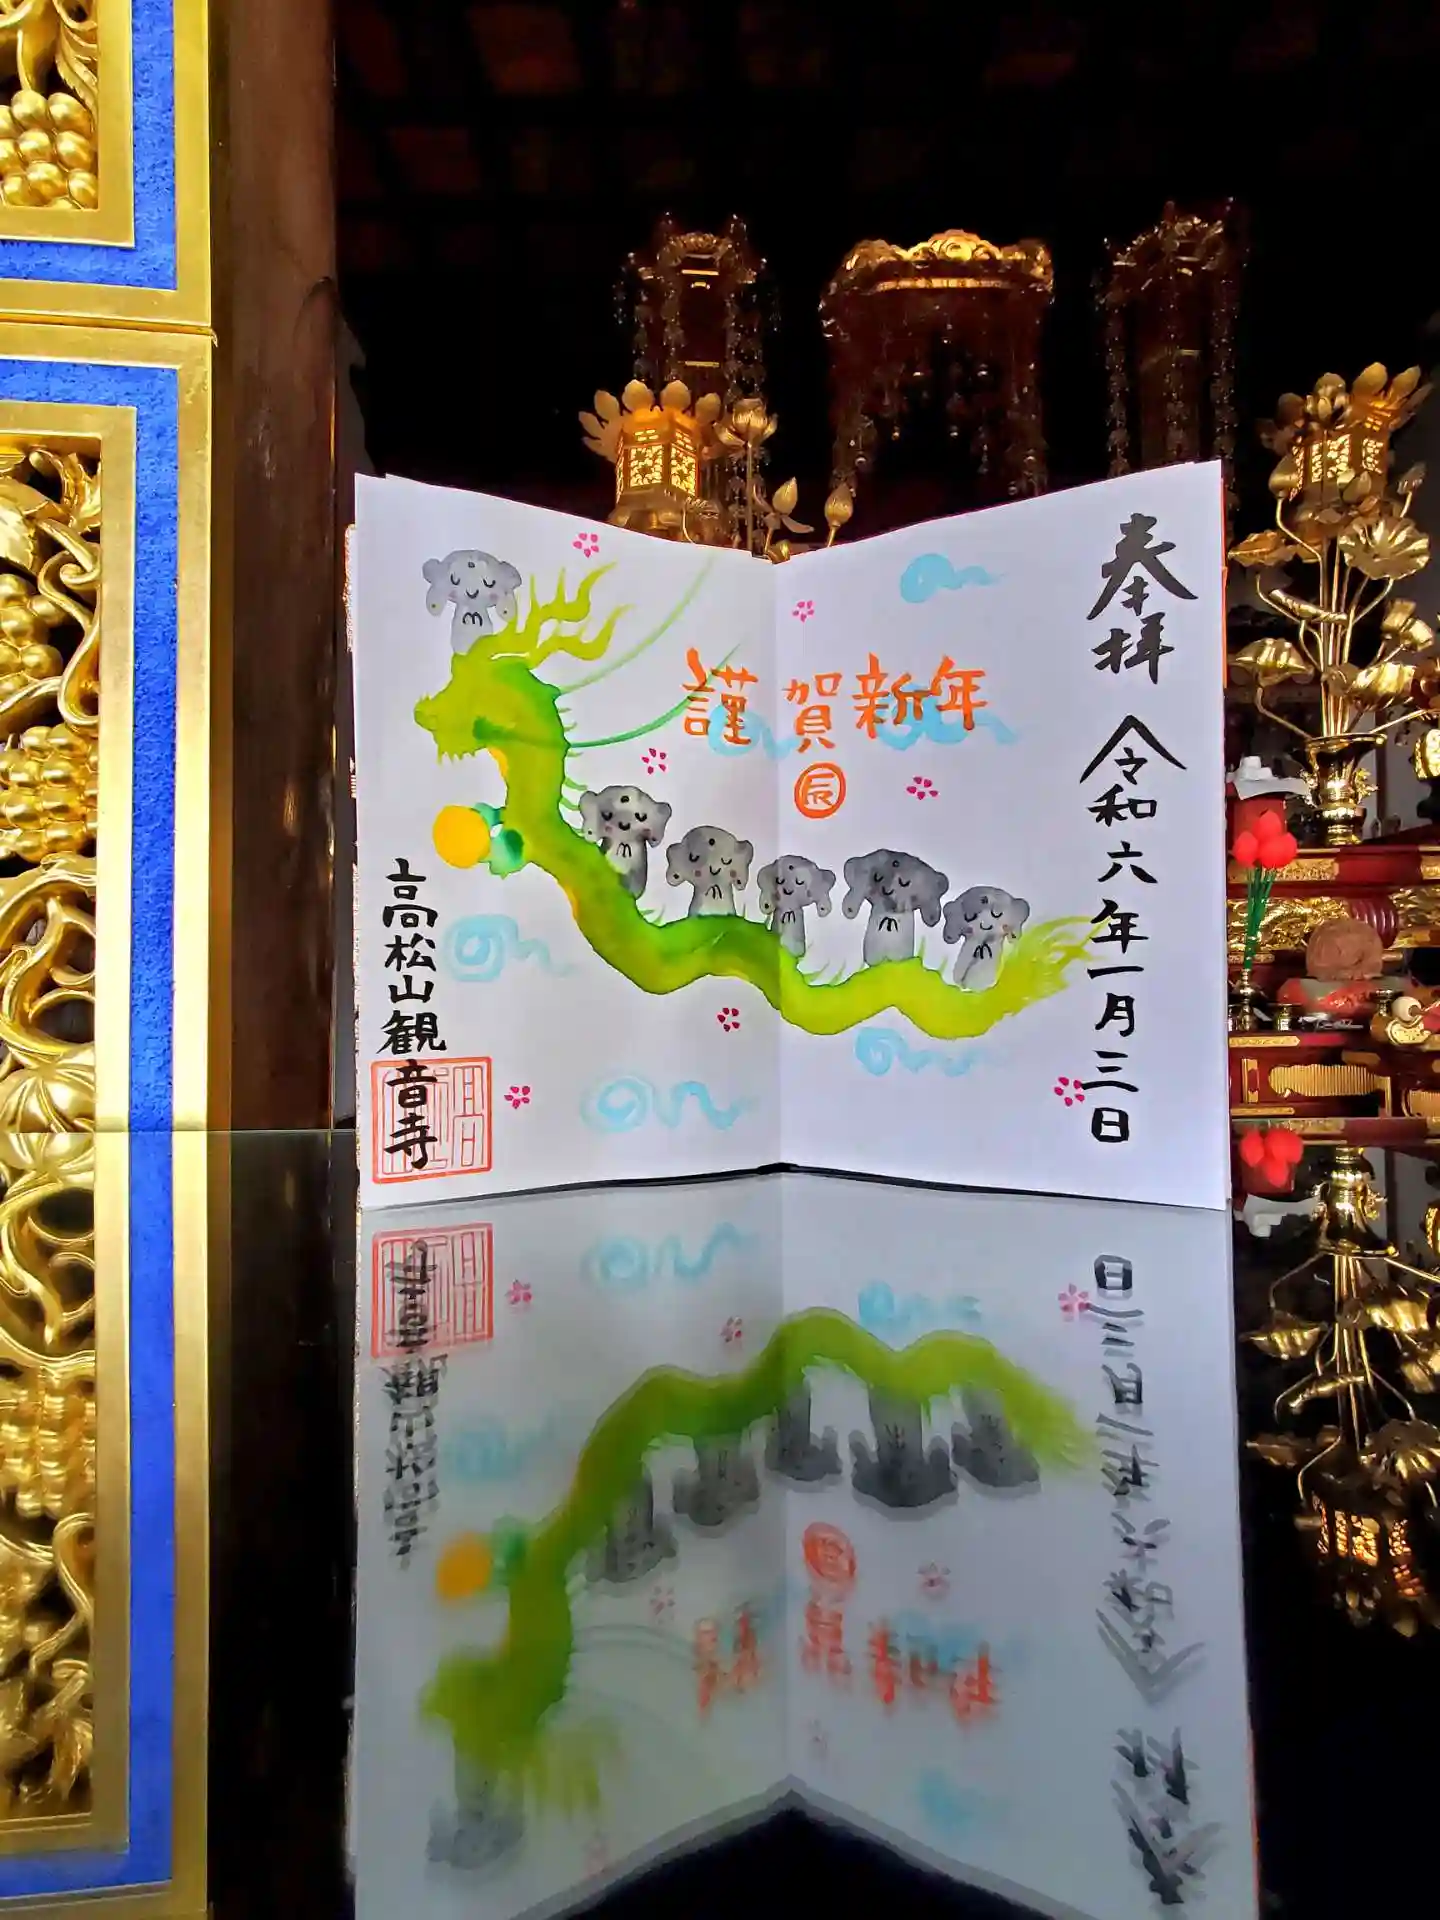 奉拝 令和六年一月三日
謹賀新年
辰
高松山観音寺